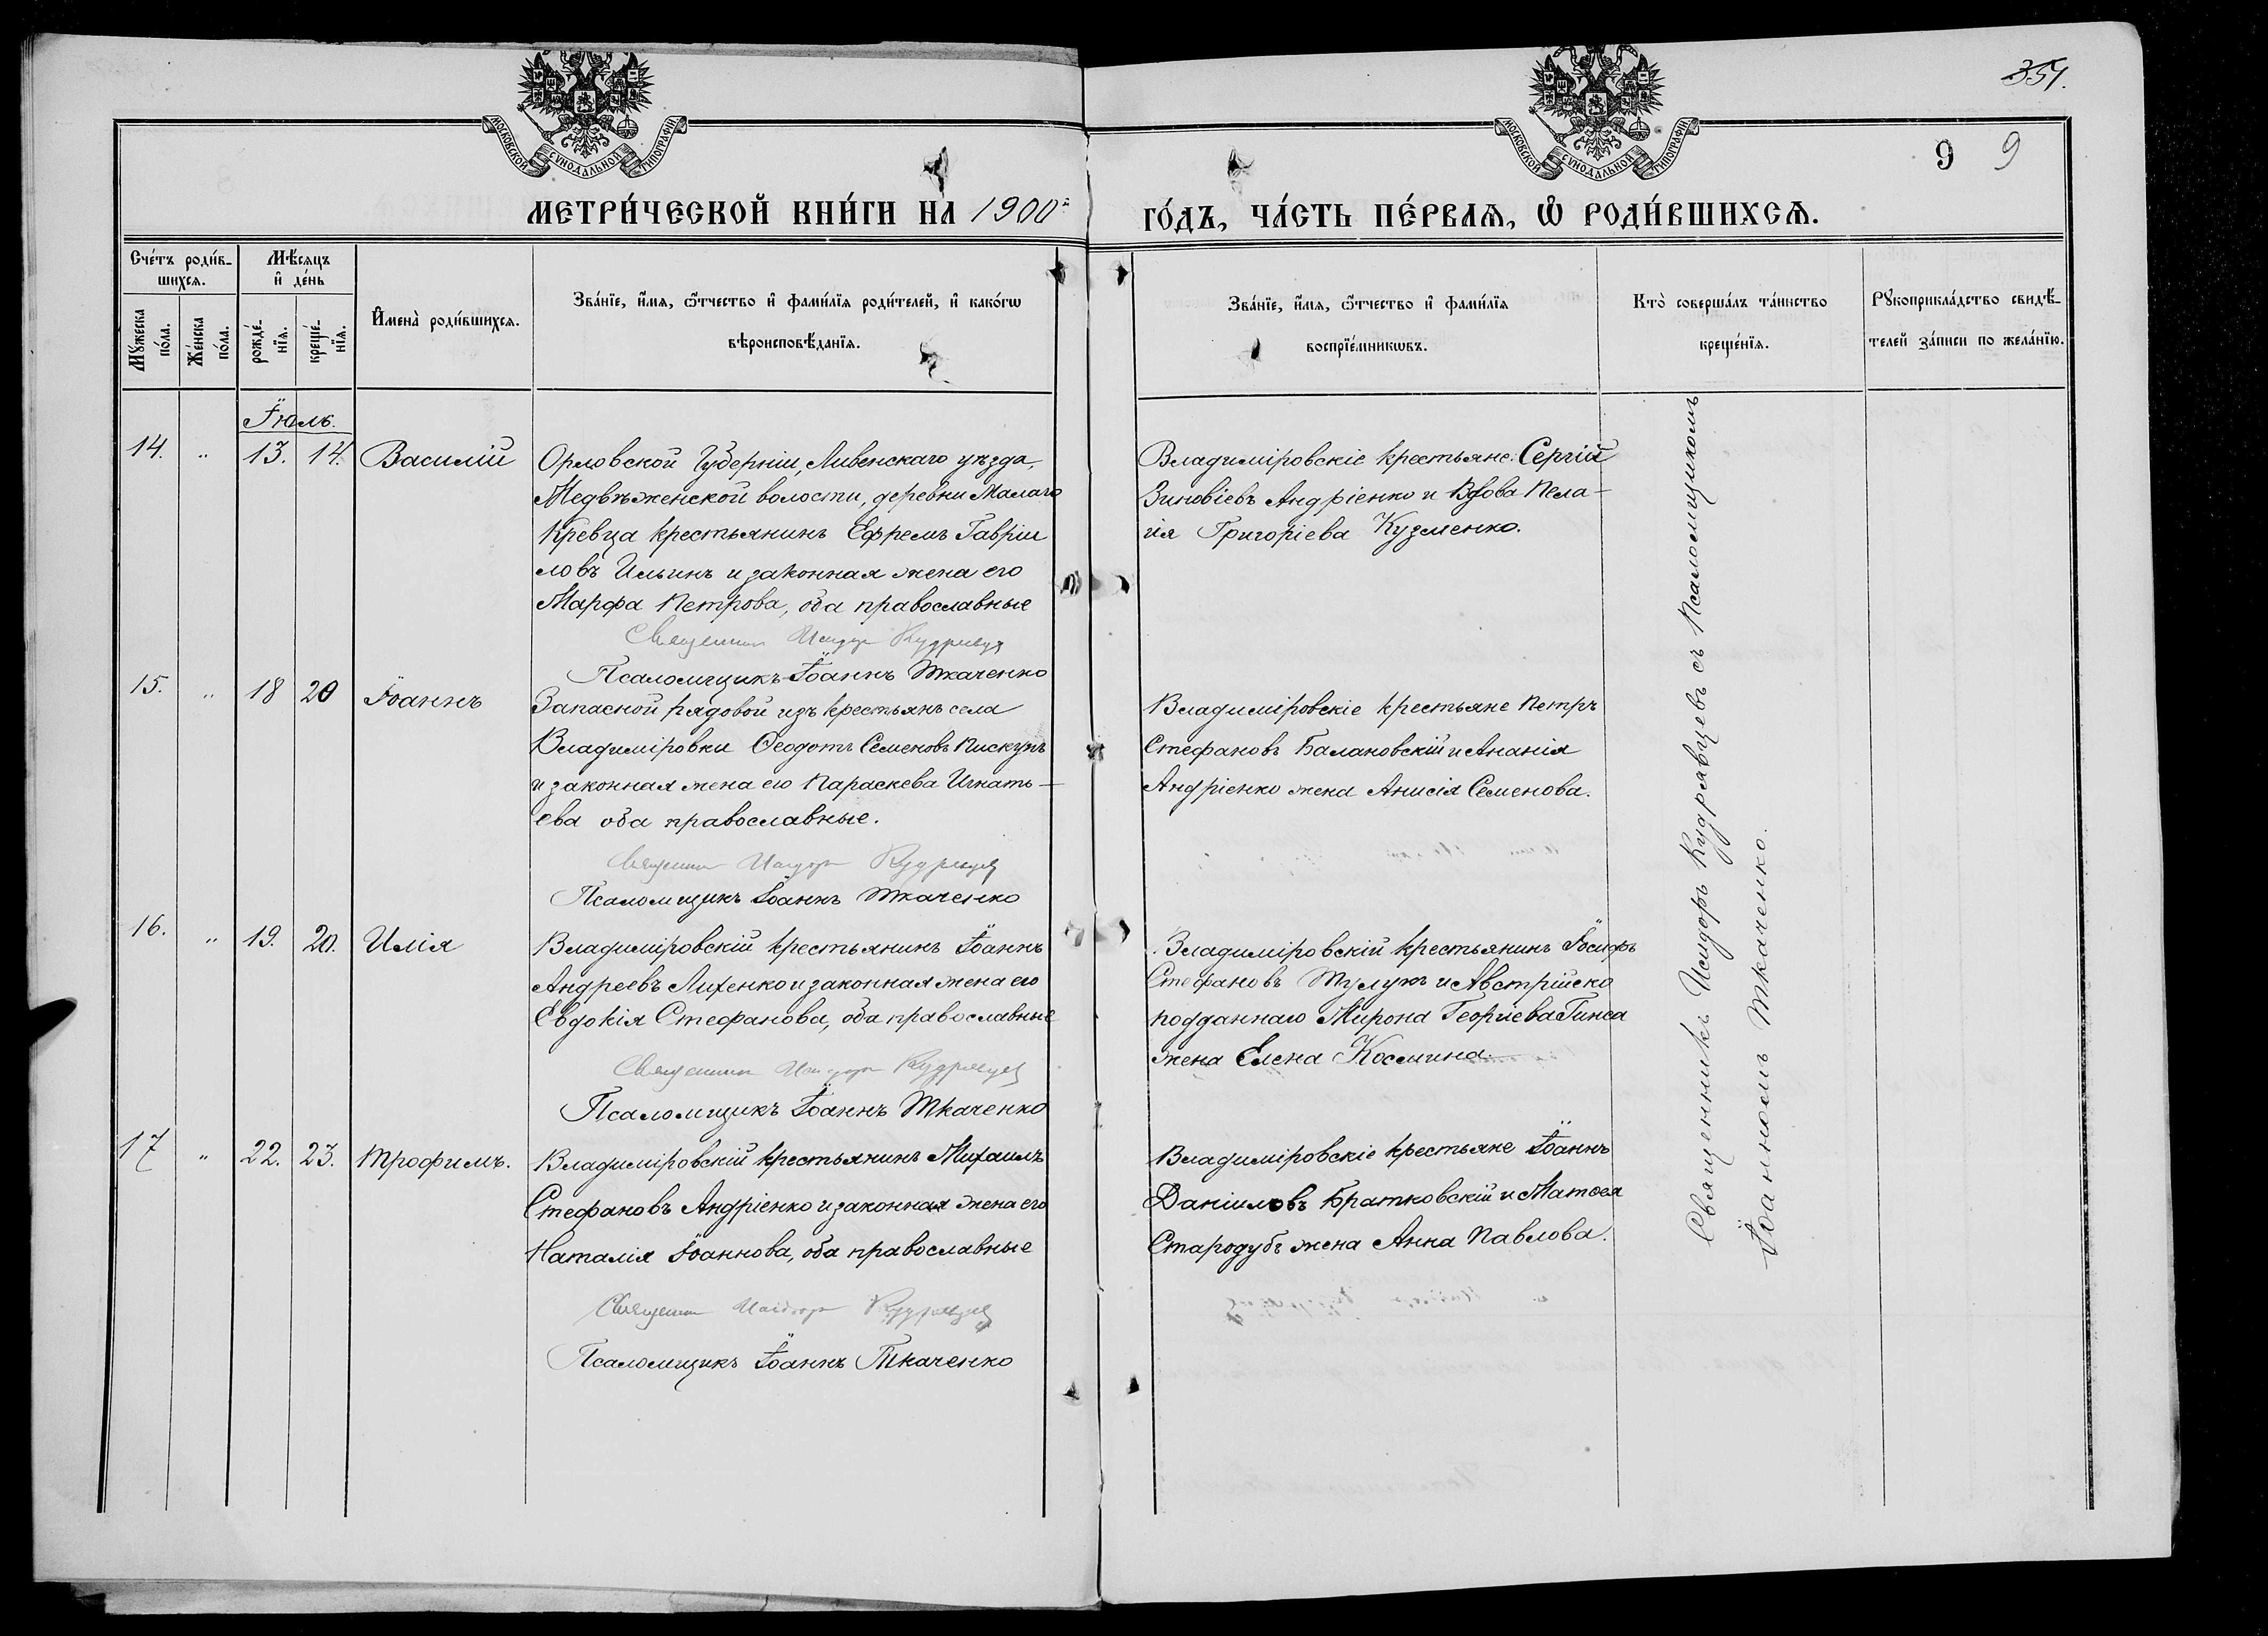 354.
9 9
МОСКОВСКОЙ СѴНОДАЛЬНОЙ ТИПОГРАФІИ
МОСКОВСКОЙ СѴНОДАЛЬНОЙ ТИПОГРАФІИ
МЕТРИ́ЧЕСКОЙ КНИ́ГИ НА 1900й ГО́ДЪ, ЧА́СТЬ ПЕ́РВАѦ, Ѡ҆ РОДИ́ВШИХСѦ.
Сче́тъ роди́в-
шихсѧ.
Мꙋ́жеска по́ла.
Же́нска по́ла.
Мѣ́сѧцъ
и҆ де́нь
рожде́-
нїѧ.
креще́-
нїѧ.
И҆мена̀ роди́вшихсѧ.
Зва́нїе, и҆́мѧ, ѻ҆́тчество и҆ фами́лїѧ роди́телей, и҆ како́гѡ
вѣроисповѣ́данїѧ.
Зва́нїе, и҆́мѧ, ѻ҆́тчество и҆ фами́лїѧ
воспрїе́мникѡвъ.
Кто̀ соверша́лъ та́инство
креще́нїѧ.
Рꙋкоприкла́дство свидѣ́-
телей за́писи по жела́нїю.
Іюль.
14. „ 13. 14. Василій
Орловской Губерніи, Ливенскаго уѣзда,
Медвѣженской волости, деревни Малаго
Кревца крестьянинъ Ефремъ Гавріи
ловъ Ильинъ и законная жена его
Марфа Петрова, оба православные
Священник Исидор Кудрявцев
Псаломщикъ Іоаннъ Ткаченко
Владиміровскіе крестьяне: Сергій
Зиновіевъ Андріенко и Вдова Пела-
гія Григоріева Кузменко.
15. „ 18 20 Іоаннъ
Запасной рядовой изъ крестьянъ села
Владиміровки Ѳеодотъ Семеновъ Пискунъ
и законная жена его Параскева Игнать-
ева оба православные.
Священник Исидор Кудрявцев
Псаломщикъ Іоаннъ Ткаченко
Владиміровскіе крестьяне Петръ
Стефановъ Балановскій и Ананія
Андріенко жена Анисія Семенова.
16. „ 19. 20. Илія
Владиміровскій крестьянинъ Іоаннъ
Андреевъ Лихенко и законная жена его
Евдокія Стефанова, оба православные
Священник Исидор Кудрявцев
Псаломщикъ Іоаннъ Ткаченко
Владиміровскій крестьянинъ Іосифъ
Стефановъ Тулупъ и Австрійско
подданнаго Мирона Георгіева Гинса
жена Елена Космина.
17 „ 22. 23. Трофимъ.
Владиміровскій крестьянинъ Михаилъ
Стефановъ Андріенко и законная жена его
Наталія Іоаннова, оба православные
Священник Исидор Кудрявцев
Псаломщикъ Іоаннъ Ткаченко
Владиміровскіе крестьяне Іоаннъ
Даніиловъ Братковскій и Матѳея
Стародубъ жена Анна Павлова.
Священникъ Исидоръ Кудрявцевъ съ Псаломщикомъ
Іоанномъ Ткаченко.